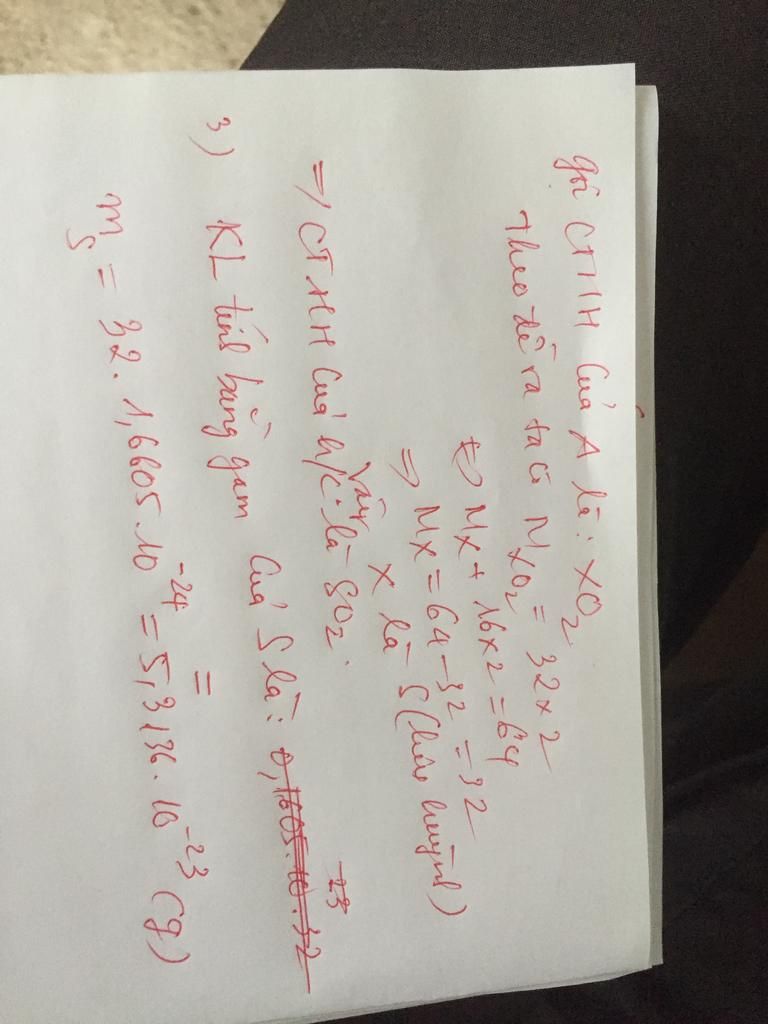 gọi CTHH của A là: XO₂
theo đề ra ta có M_XO₂ = 32 x 2
⇔ Mx + 16x2 = 64
⇒ Mx = 64 - 32 = 32
Vậy X là S (lưu huỳnh)
⇒ CTHH của h/c là SO₂.
3) KL tính bằng gam của S là: 0,1605.10⁻²³.32
=
m_S = 32. 1,6605.10⁻²⁴ = 5,3136.10⁻²³ (g)